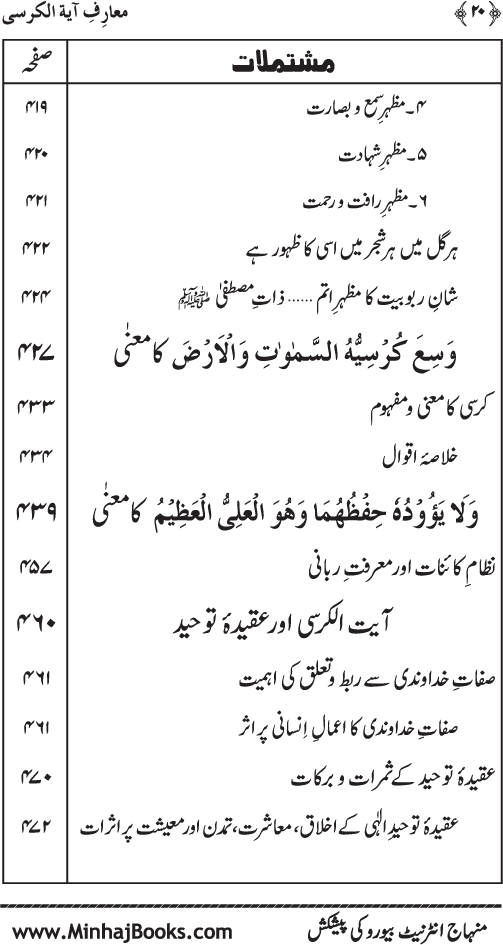 ﴿۲۰﴾ معارفِ آیة الکرسی
مشتملات صفحہ
۴۔ مظہرِ سمع و بصارت ۴۱۹
۵۔ مظہرِ شہادت ۴۲۰
۶۔ مظہرِ رافت و رحمت ۴۲۱
ہر گل میں ہر شجر میں اسی کا ظہور ہے ۴۲۲
شانِ ربوبیت کا مظہرِ اتم ...... ذاتِ مصطفیٰ ﷺ ۴۲۴
وَسِعَ كُرْسِيُّهُ السَّمٰوٰتِ وَالْاَرْضَ کا معنٰی ۴۲۷
کرسی کا معنی و مفہوم ۴۳۳
خلاصۂ اقوال ۴۳۴
وَلَا يَؤُوْدُهٗ حِفْظُهُمَا وَهُوَ الْعَلِىُّ الْعَظِيْمُ کا معنٰی ۴۳۹
نظامِ کائنات اور معرفتِ ربانی ۴۵۷
آیت الکرسی اور عقیدۂ توحید ۴۶۰
صفاتِ خداوندی سے ربط و تعلق کی اہمیت ۴۶۱
صفاتِ خداوندی کا اعمالِ اِنسانی پر اثر ۴۶۱
عقیدۂ توحید کے ثمرات و برکات ۴۷۰
عقیدۂ توحیدِ الٰہی کے اخلاق، معاشرت، تمدن اور معیشت پر اثرات ۴۷۲
منہاج انٹرنیٹ بیورو کی پیشکش www.MinhajBooks.com